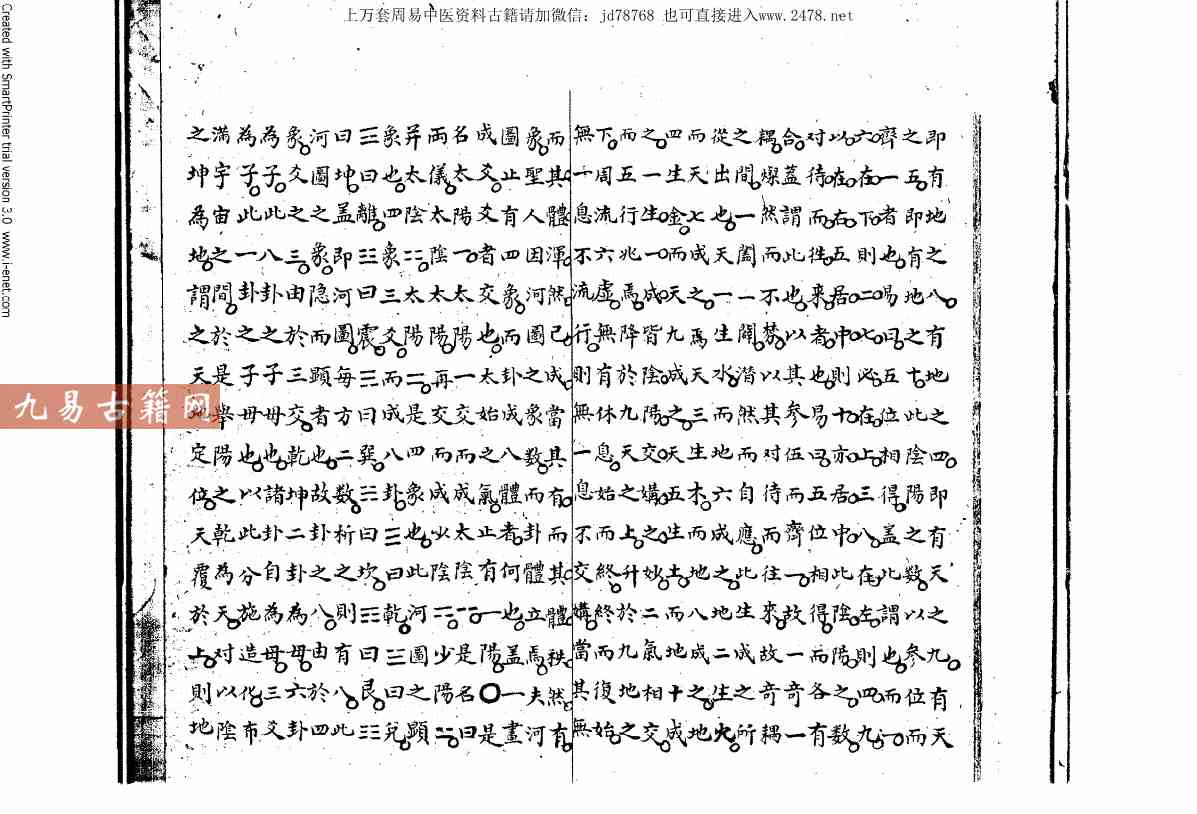 上万套周易中医资料古籍请加微信：jd78768 也可直接进入www.2478.net
即有地之八有地之四即有天之九有天
之五即有地之十此陰陽之數以參位而
齊一者也易曰五位相得蓋此謂也而一
六在下則二七必在上三八在左則四九
以在右五居中則十亦居中此陰陽之數
对待而徃来者也易曰五位相得而各有
合蓋謂此也以其參伍而齊一故一奇一
耦燦然而不棼以其对待而往來故奇耦
之間一闔一闢潛然而自應此生成之所
從出也天一生水而地六成之地二生火
而天七成之焉天三生木而地八成之地
四生金而天九成之天五生土而地十成
之一生一成皆陰陽交媾之妙二氣相交
而五行兆焉降於九天之上升於九地之
下周流六虛無有休息始而終終而復始
無一息不流行則無一息不交媾當其無
而其體渾然已成當其有而其體秩然有
象聖人因河圖之象數而卦體立焉夫河
圖止有四象而卦成八體者何也蓋一畫
成爻爻者交也太始之氣止有一陽是
名太陽太陽一交而成太陰是名曰
兩儀太陰太陽再交而成少陰少陽
并太陰太陽是四象也此河圖之顯
象也四象三爻而成八卦曰乾曰兌
曰離曰震曰巽曰坎曰艮
曰坤蓋即河圖每方二數析之則有八此
河圖之象隐而顕者也故卦之八由於四
象爻之三由於三交乾坤二卦為母六卦
為子此八卦之子母也諸卦自為母三爻
為子此一卦之子母也以此分施造化布
滿宇宙之間於是舉陽之乾為天对以陰
之坤為地謂之天地定位天覆於上則地
九易古籍网
Created with SmartPrinter trial version 3.0 www.i-enet.com